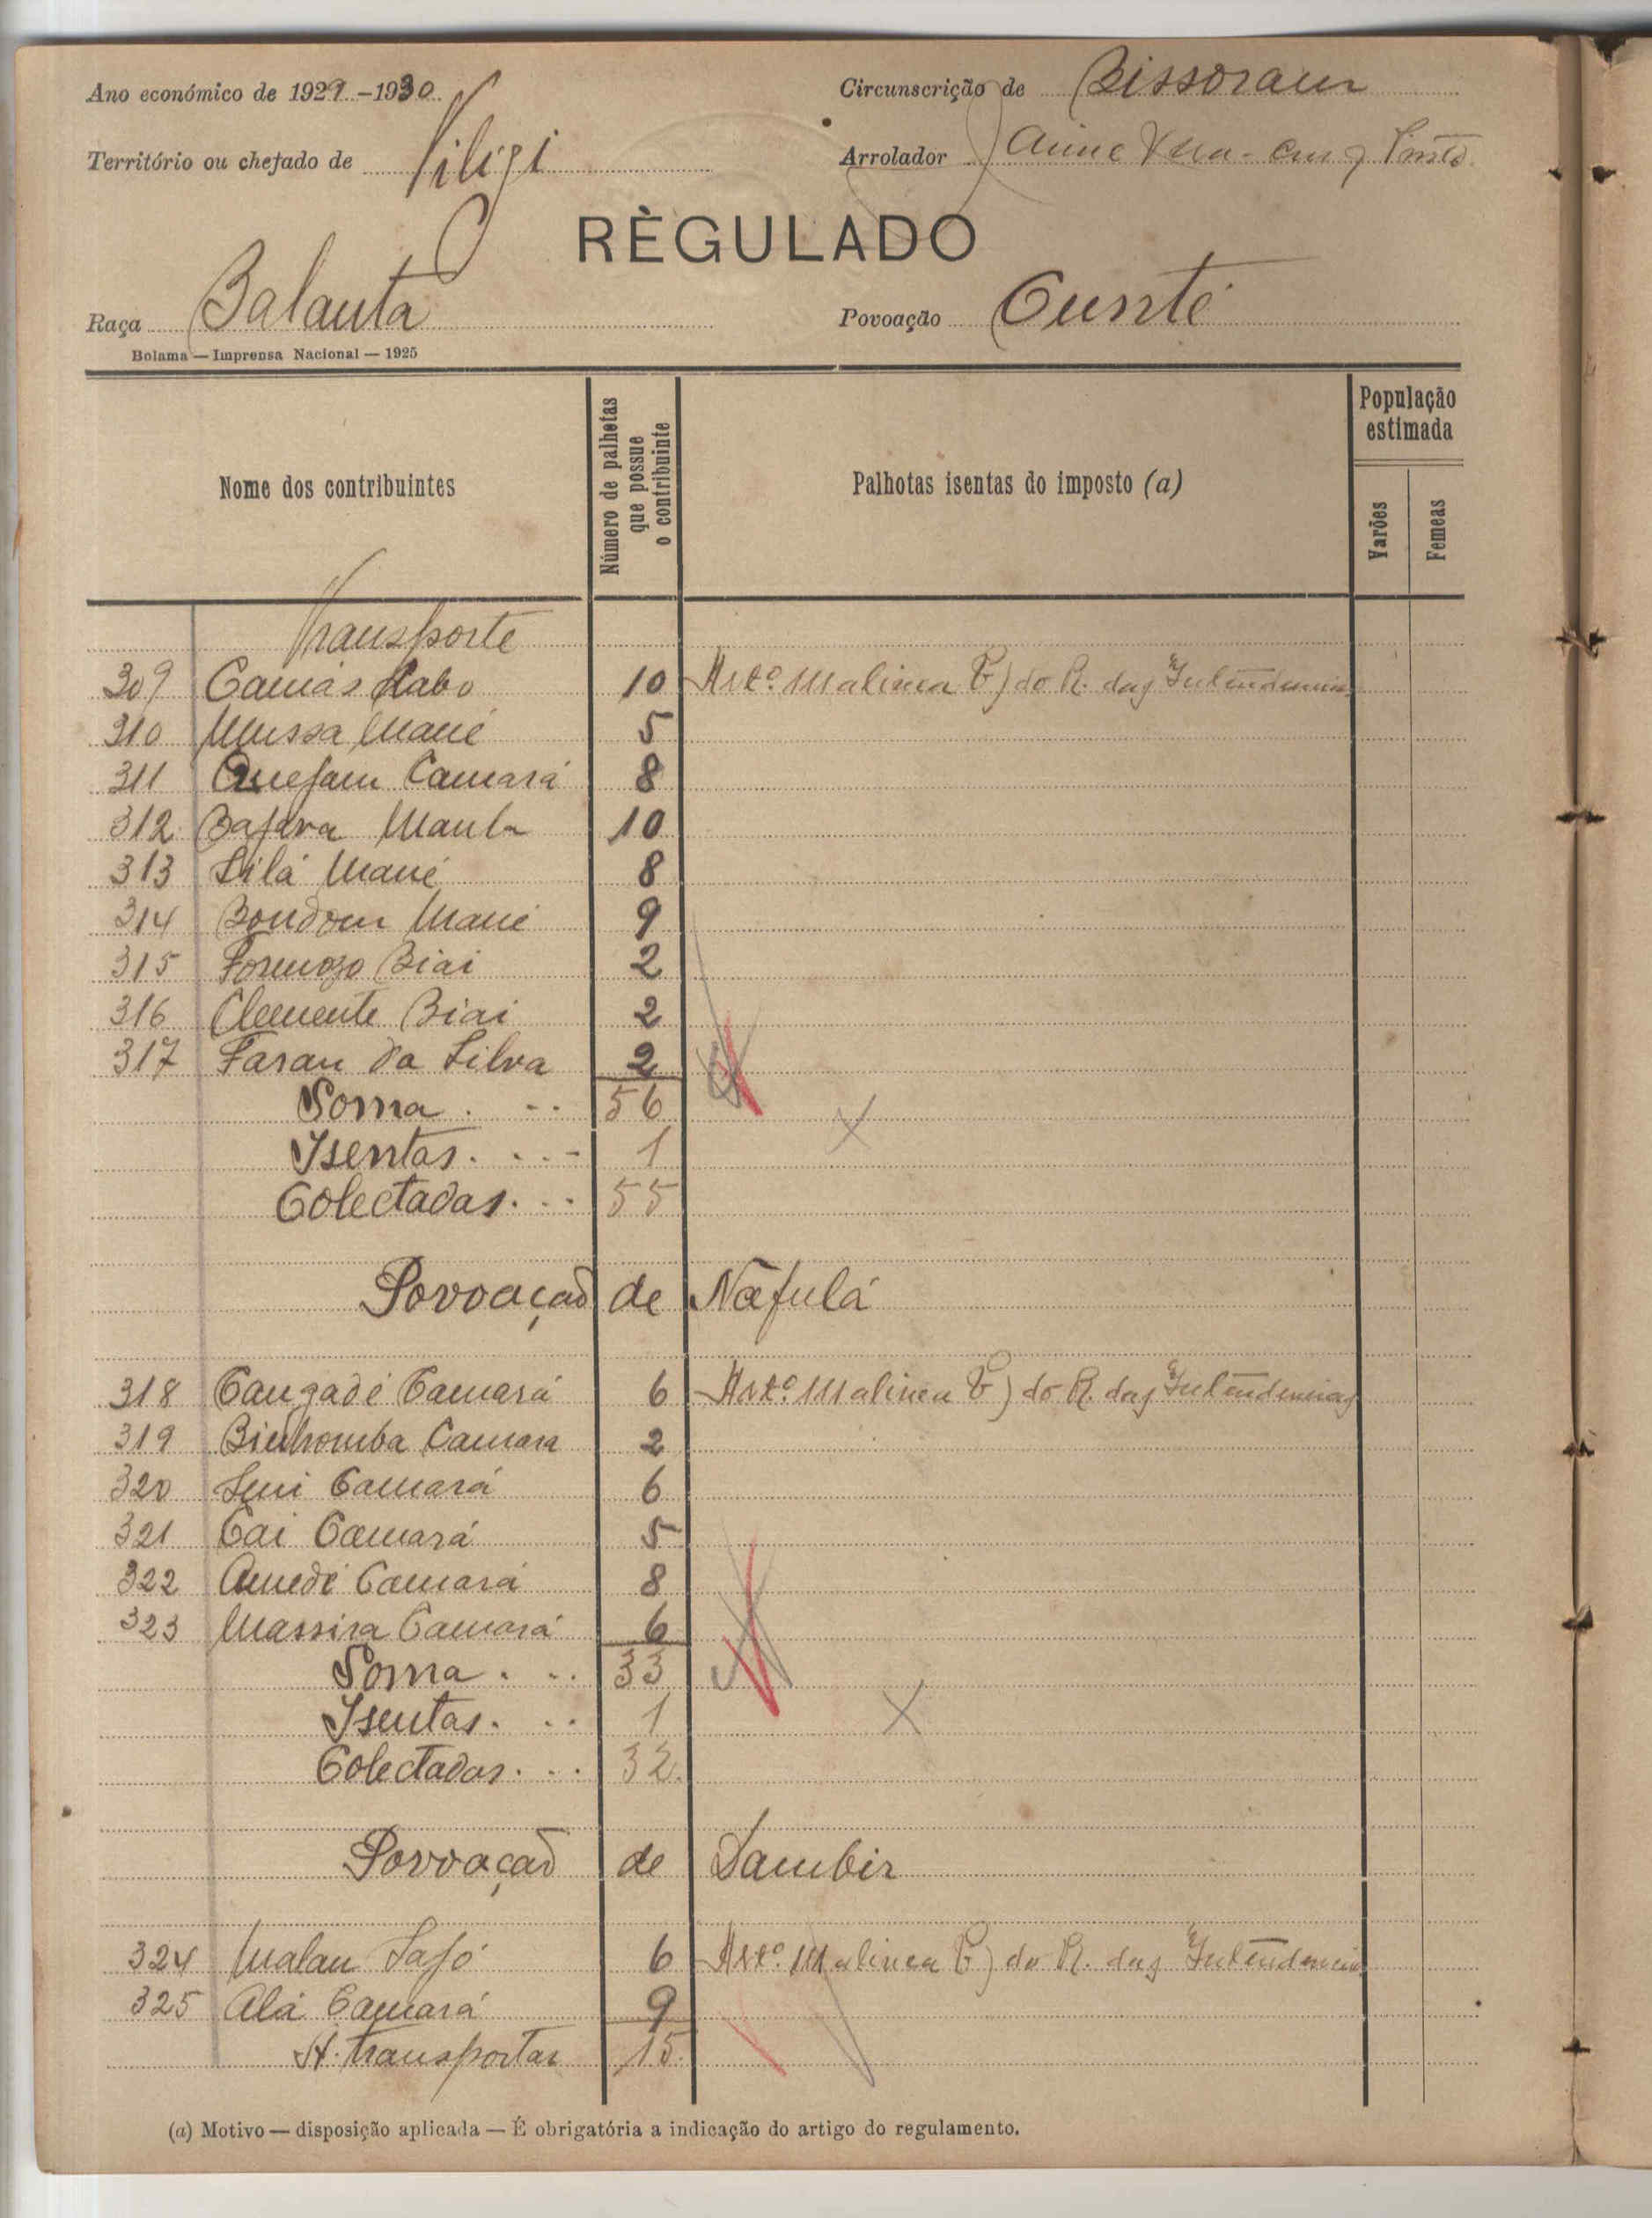 Ano económico de 1929-1930
Circunscrição de Bissoram
Território ou chefado de
Arrolador
RÈGULADO
Raça Balanta
Povoação Cunté
Bolama — Imprensa Nacional — 1925
Nome dos contribuintes
Número de palhotas que possue o contribuinte
Palhotas isentas do imposto (a)
População estimada
Varões
Femeas
Transporte
309 10 alinea do R. das Intendencias
310 Mussa Mané 5
311 Quefam Camará 8
312 10
313 Silá Mané 8
314 Mané 9
315 Biai 2
316 Clemente Biai 2
317 Faran da Silva 2
Soma . . . 56
Isentas. . . . 1
Colectadas. . . 55
Povoação de Nafulá
318 Camará 6 alinea do R. das Intendencias
319 Camara 2
320 Camará 6
321 Cai Camará 5
322 Camará 8
323 Massira Camará 6
Soma . . . 33
Isentas. . . 1
Colectadas. . . 32
Povoação de Lambir
324 Malan 6 alinea do R. das Intendencias
325 Alá Camará 9
A transportar 15
(a) Motivo — disposição aplicada — É obrigatória a indicação do artigo do regulamento.